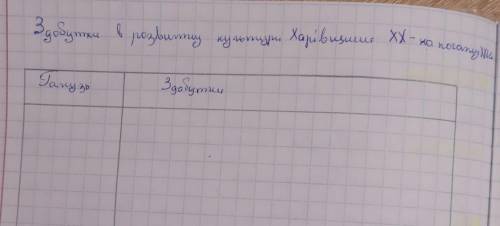 Здобутки в розвитку культури Харківщини XX - на початку XXI
Галузь
Здобутки